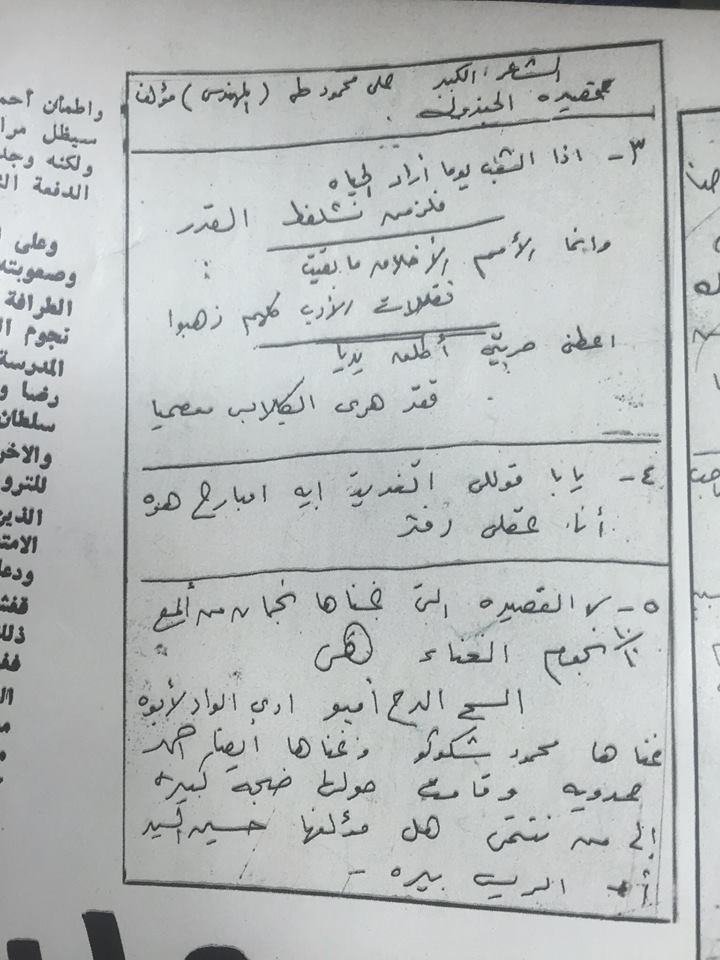 الشعر الكبير على محمود طه (المهندس) مؤلف
قصيدة الجندول
٣- اذا الشعب يوما أراد الحياه
فلزمن نشلفط القدر
وانما الأمم الأخلاق ما بقيت
فقلات الأدب كلهم زهبوا
اعطنى حريتي أطلق يديا
فقد هرى الكلاب معصميا
٤- يابا قوللى التغدية ايه امبارح هوه
أنا عقلى دفتر
٥- القصيده التي غناها نجمان من ألمع
نجوم الغناء هى
السح الدح أمبو ادى الواد لأبوه
غناها محمود شكوكو وغناها أيضا احمد
عدوية وقامت حولها ضجه كبيره
إلى من تنتمى هل مؤلفها حسين السيد
أم الريس بيره -
واطمأن أحم
سيظل مرا
ولكنه وجد
الدفعة الث
وعلى ا
وصعوبته
الطرافة
نجوم ال
المدرسة
رضا و
سلطان
والاخر
للترو
الذين
الامت
ودعا
ذلك